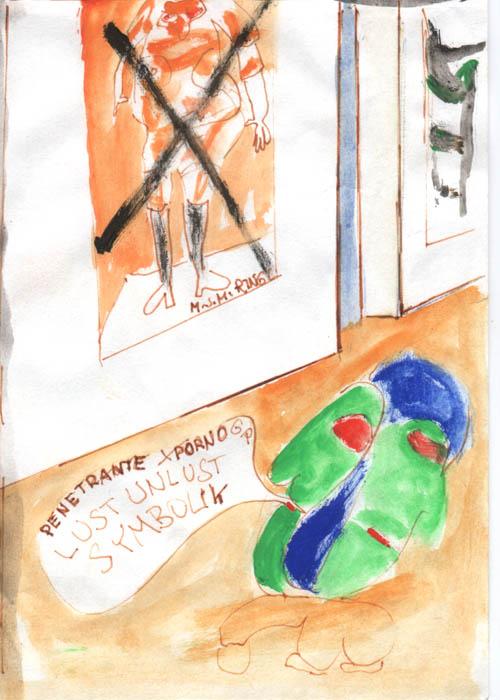 M.v.M. RING
PENETRANTE XPORNO
LUST UNLUST
SYMBOLIK